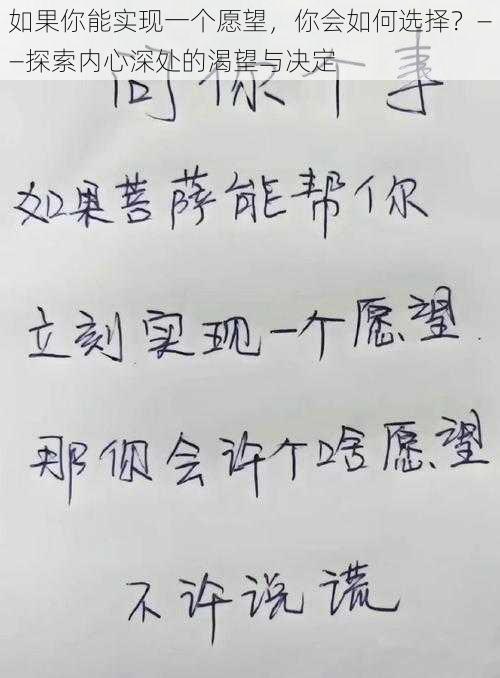 如果你能实现一个愿望，你会如何选择？—
—探索内心深处的渴望与决定
问你个事
如果菩萨能帮你
立刻实现一个愿望
那你会许个啥愿望
不许说谎